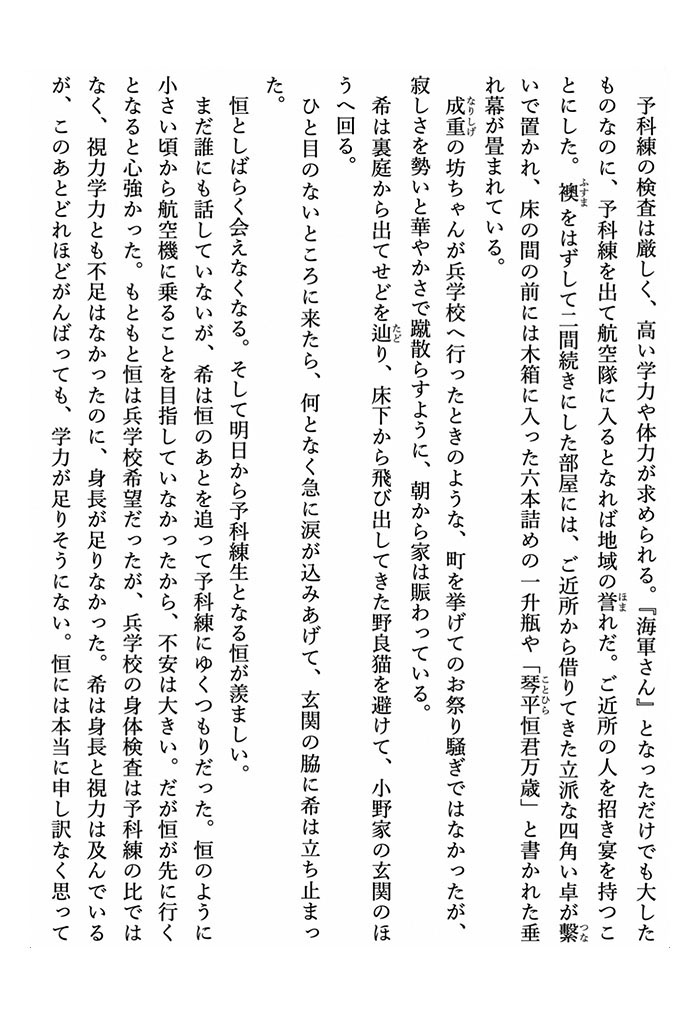 予科練の検査は厳しく、高い学力や体力が求められる。『海軍さん』となっただけでも大した
ものなのに、予科練を出て航空隊に入るとなれば地域の誉れだ。ご近所の人を招き宴を持つこ
とにした。襖をはずして二間続きにした部屋には、ご近所から借りてきた立派な四角い卓が繫
いで置かれ、床の間の前には木箱に入った六本詰めの一升瓶や「琴平恒君万歳」と書かれた垂
れ幕が畳まれている。
成重の坊ちゃんが兵学校へ行ったときのような、町を挙げてのお祭り騒ぎではなかったが、
寂しさを勢いと華やかさで蹴散らすように、朝から家は賑わっている。
希は裏庭から出てせどを辿り、床下から飛び出してきた野良猫を避けて、小野家の玄関のほ
うへ回る。
ひと目のないところに来たら、何となく急に涙が込みあげて、玄関の脇に希は立ち止まっ
た。
恒としばらく会えなくなる。そして明日から予科練生となる恒が羨ましい。
まだ誰にも話していないが、希は恒のあとを追って予科練にゆくつもりだった。恒のように
小さい頃から航空機に乗ることを目指していなかったから、不安は大きい。だが恒が先に行く
となると心強かった。もともと恒は兵学校希望だったが、兵学校の身体検査は予科練の比では
なく、視力学力とも不足はなかったのに、身長が足りなかった。希は身長と視力は及んでいる
が、このあとどれほどがんばっても、学力が足りそうにない。恒には本当に申し訳なく思って